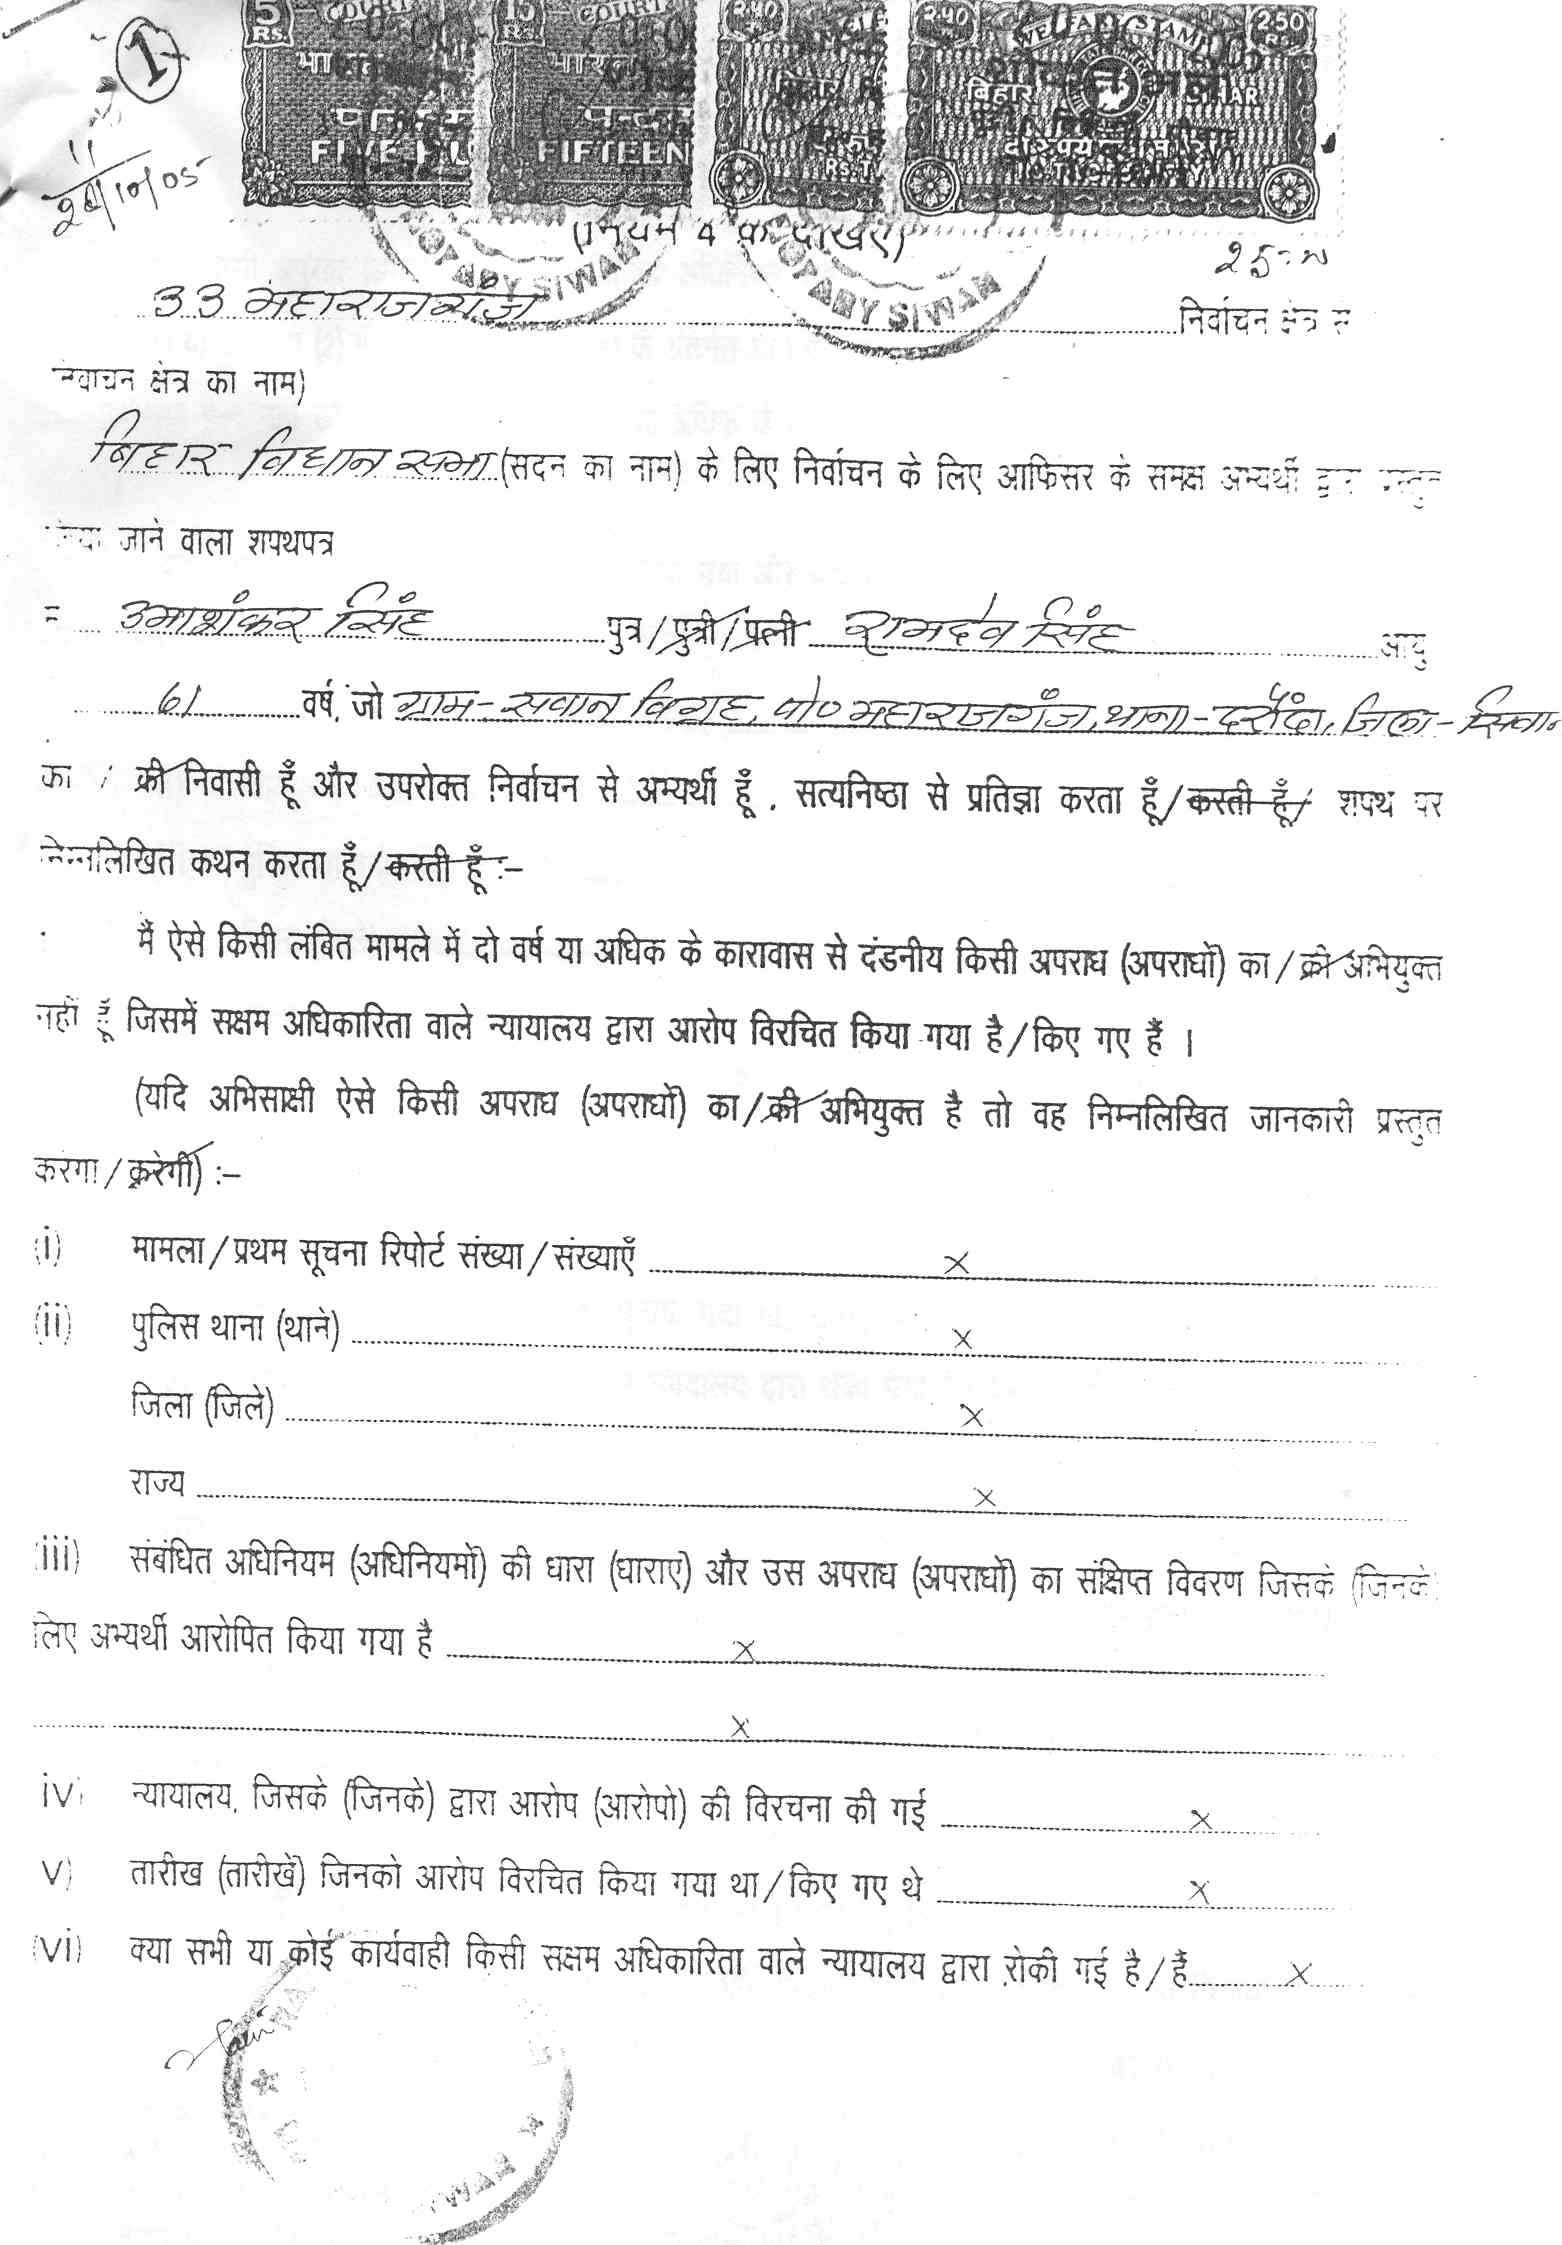 1
COURT COURT 2.50 WELFARE STAMP 2.50
5 RS. 15
बिहार BIHAR
FIFTEEN
26/10/05
(नियम 4 क देखिए)
SIWAN SIWAN
33 महाराजगंज निर्वाचन क्षेत्र स
क्षेत्र का नाम)
बिहार विधान सभा (सदन का नाम) के लिए निर्वाचन के लिए आफिसर के समक्ष अभ्यर्थी द्वारा प्रस्तुत
जाने वाला शपथपत्र
उमाशंकर सिंह पुत्र/पुत्री/पत्नी रामदेव सिंह आयु
61 वर्ष, जो ग्राम-सवान विग्रह, पो० महाराजगंज, थाना-दरौंदा, जिला-सिवा
का / की निवासी हूँ और उपरोक्त निर्वाचन से अभ्यर्थी हूँ . सत्यनिष्ठा से प्रतिज्ञा करता हूँ/करती हूँ/ शपथ पर
निम्नलिखित कथन करता हूँ/करती हूँ :-
मैं ऐसे किसी लंबित मामले में दो वर्ष या अधिक के कारावास से दंडनीय किसी अपराध (अपराधों) का/की अभियुक्त
नहीं हूँ जिसमें सक्षम अधिकारिता वाले न्यायालय द्वारा आरोप विरचित किया गया है/किए गए हैं ।
(यदि अभिसाक्षी ऐसे किसी अपराध (अपराधों) का/की अभियुक्त है तो वह निम्नलिखित जानकारी प्रस्तुत
करेगा/करेगी) :-
(i) मामला/प्रथम सूचना रिपोर्ट संख्या/संख्याएँ x
(ii) पुलिस थाना (थाने) x
जिला (जिले) x
राज्य x
(iii) संबंधित अधिनियम (अधिनियमों) की धारा (धाराए) और उस अपराध (अपराधों) का संक्षिप्त विवरण जिसके (जिनके)
लिए अभ्यर्थी आरोपित किया गया है x
x
iv) न्यायालय, जिसके (जिनके) द्वारा आरोप (आरोपो) की विरचना की गई x
v) तारीख (तारीखें) जिनको आरोप विरचित किया गया था/किए गए थे x
(vi) क्या सभी या कोई कार्यवाही किसी सक्षम अधिकारिता वाले न्यायालय द्वारा रोकी गई है/हैं x